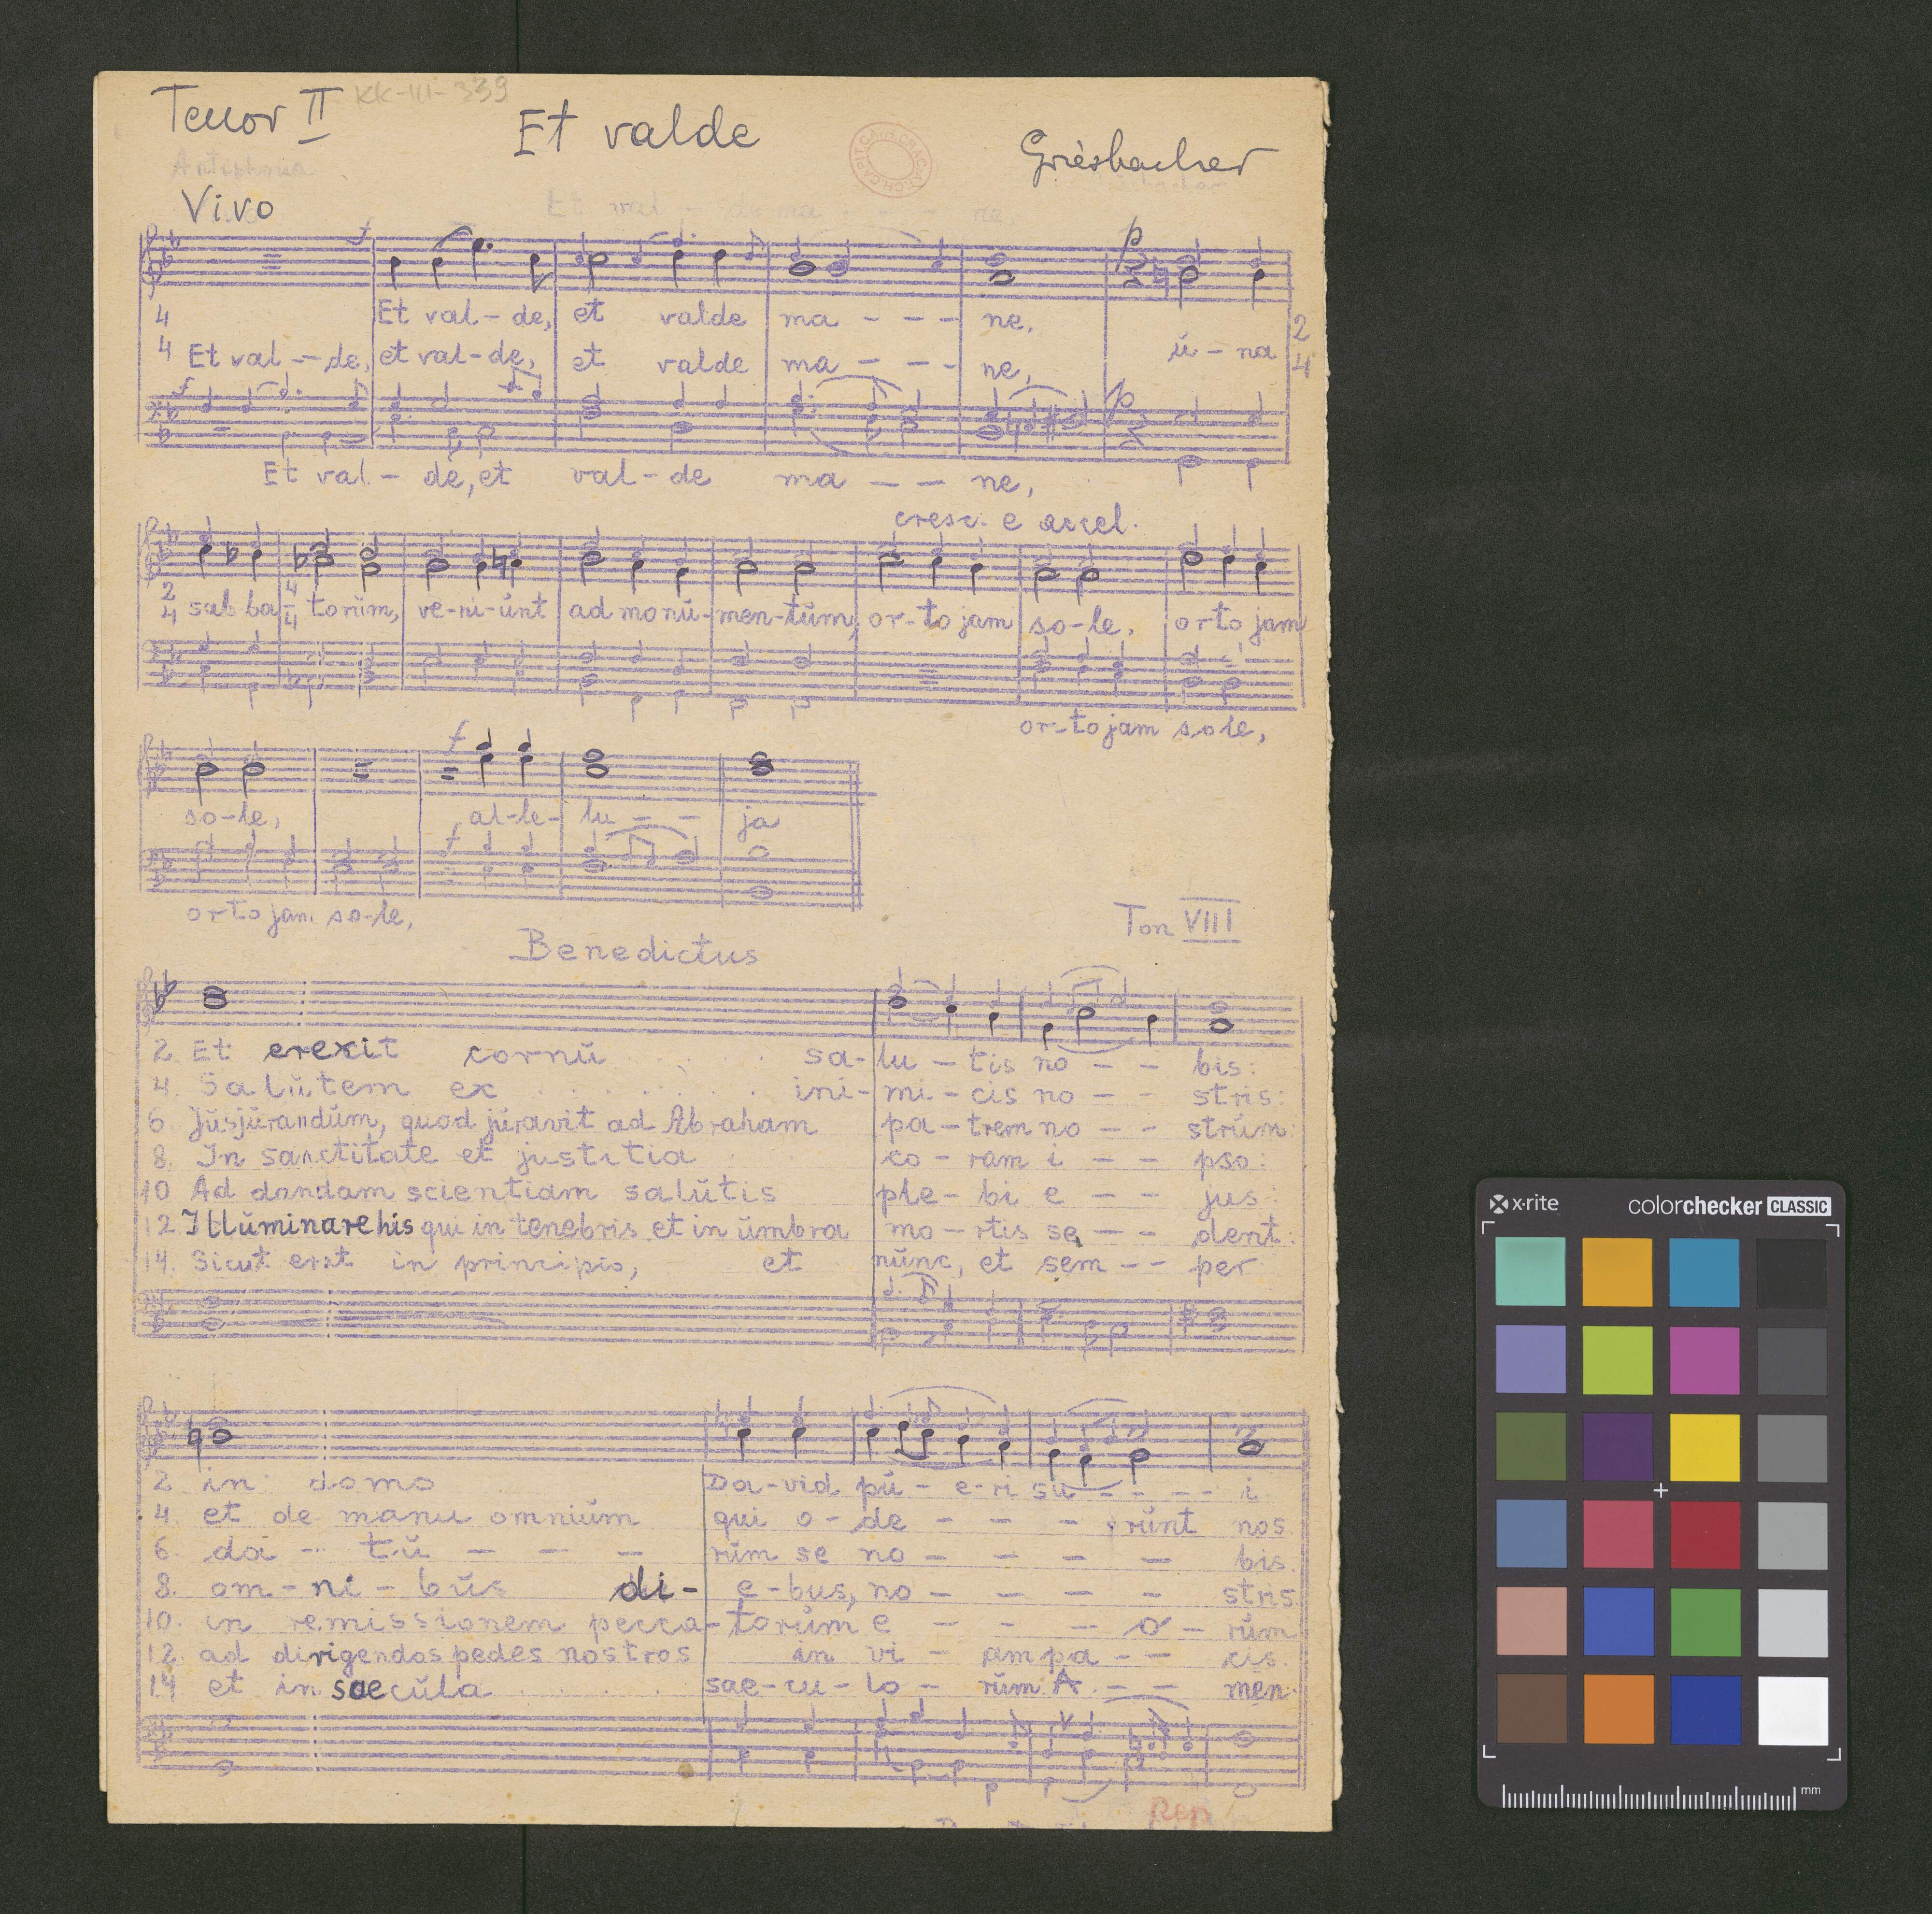 Tenor II KK-III-339
Et valde
Griesbacher
Antiphona
Vivo
Et val - de ma - - - ne.
f p
4 Et val - de, et valde ma - - - ne, 2
4 Et val - - de, et val - de, et valde ma - - - ne, ú - na 4
f p
Et val - de, et val - de ma - - ne,
cresc. e accel.
2 4
4 sab ba 4 torŭm, ve - ni - ŭnt ad monŭ - men - tŭm, or - to jam so - le, orto jam
or - to jam sole,
f
so - le, al - le - lu - - ja
f
orto jam so - le,
Ton VIII
Benedictus
2. Et erexit cornŭ . . . sa - lu - tis no - - bis:
4. Salŭtem ex . . . . . . ini - mi - cis no - - stris:
6 Jŭsjŭrandŭm, quod jŭravit ad Abraham pa - trem no - - strŭm:
8. In sanctitate et justitia co - ram i - - pso:
10 Ad dandam scientiam salŭtis ple - bi e - - jus:
12 Illŭminare his qui in tenebris et in ŭmbra mo - rtis se - - dent:
14. Sicut erat in principio, et nŭnc, et sem - - per
2 in domo Da - vid pŭ - e - ri su - - - - i
4. et de manu omniŭm qui o - de - - - rŭnt nos.
6. da - tŭ - - - rŭm se no - - - - bis.
8. om - ni - bŭs di - e - bus, no - - - - stris.
10. in remissionem pecca - torŭm e - - - o - rŭm
12. ad dirigendos pedes nostros in vi - am pa - - cis.
14 et in saecŭla . . . . sae - cu - lo - rŭm. A - - men.
Rep
x·rite colorchecker CLASSIC
mm